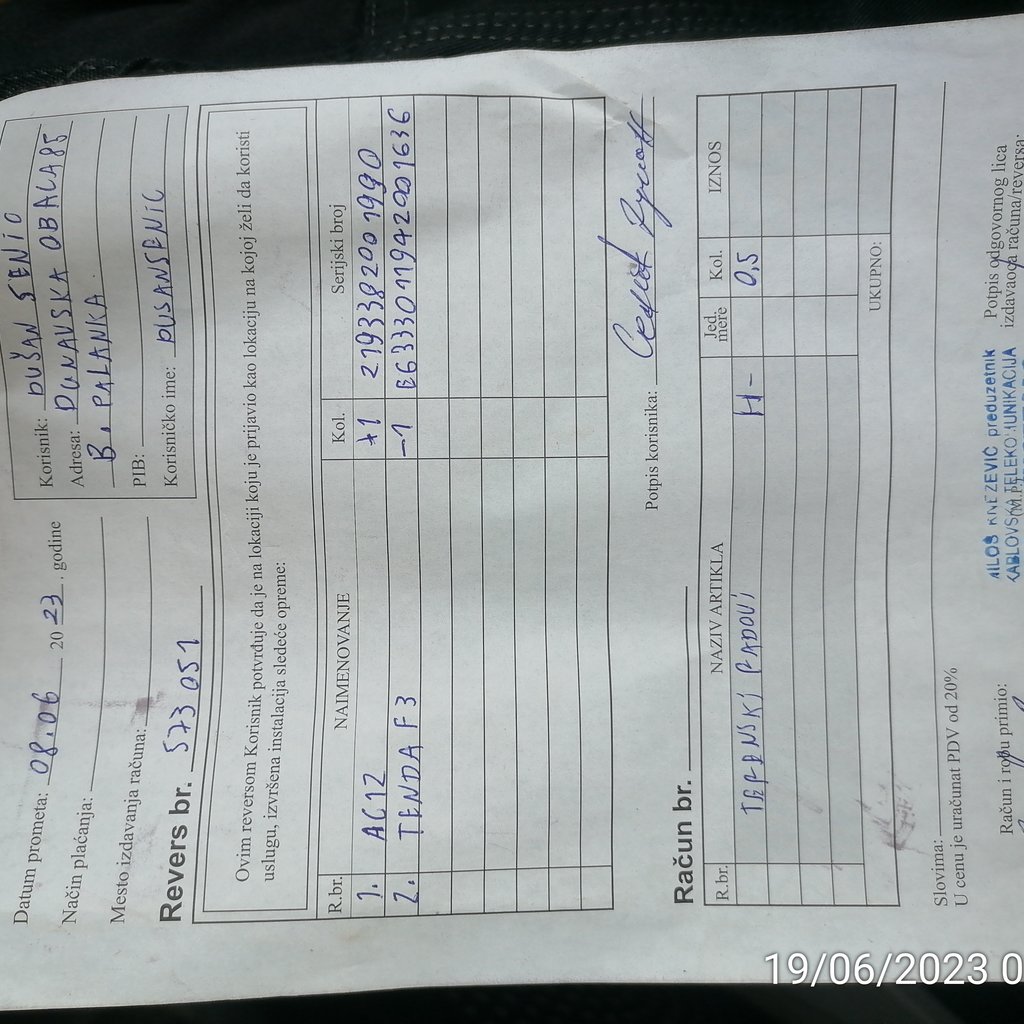 Datum prometa: 08.06 20 23. godine
Način plaćanja:
Mesto izdavanja računa:
Korisnik: DUŠAN SENIĆ
Adresa: DUNAVSKA OBALA 85
B. PALANKA
PIB:
Korisničko ime: DUSANSENIC
Revers br. 573 051
Ovim reversom Korisnik potvrđuje da je na lokaciji koju je prijavio kao lokaciju na kojoj želi da koristi
uslugu, izvršena instalacija sledeće opreme:
R.br. NAIMENOVANJE Kol. Serijski broj
1. AC12 +1 2193382001990
2. TENDA F3 -1 E6333011942001636
Potpis korisnika:
Račun br.
R.br. NAZIV ARTIKLA Jed. mere Kol. IZNOS
TERENSKI RADOVI H- 0,5
UKUPNO:
Slovima:
U cenu je uračunat PDV od 20%
Račun i robu primio:
MILOŠ KNEZEVIĆ preduzetnik
KABLOVSKA TELEKOMUNIKACIJA
(M.P.)
Potpis odgovornog lica
izdavaoca računa/reversa:
19/06/2023 0